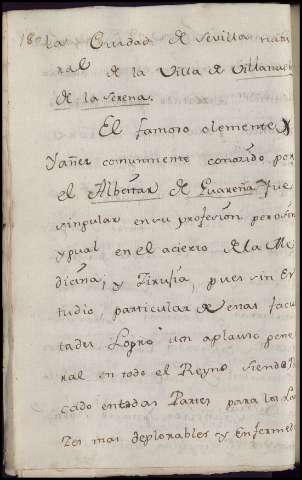 18
la Ciudad de Sevilla natu
ral de la Villa de Villanueva
de la Serena.
El famoso Clemente
Yañez comunmente conozido por
el Albeitar de Guareña fue
singular en su profesion pero sin
ygual en el acierto de la Me
dicina, y Zirugia, pues sin Es
tudio, particular de estas facu
tades Logro un aplauso gene
ral en todo el Reyno siendo
cado en todas Partes para los
mas deplorables y enferme